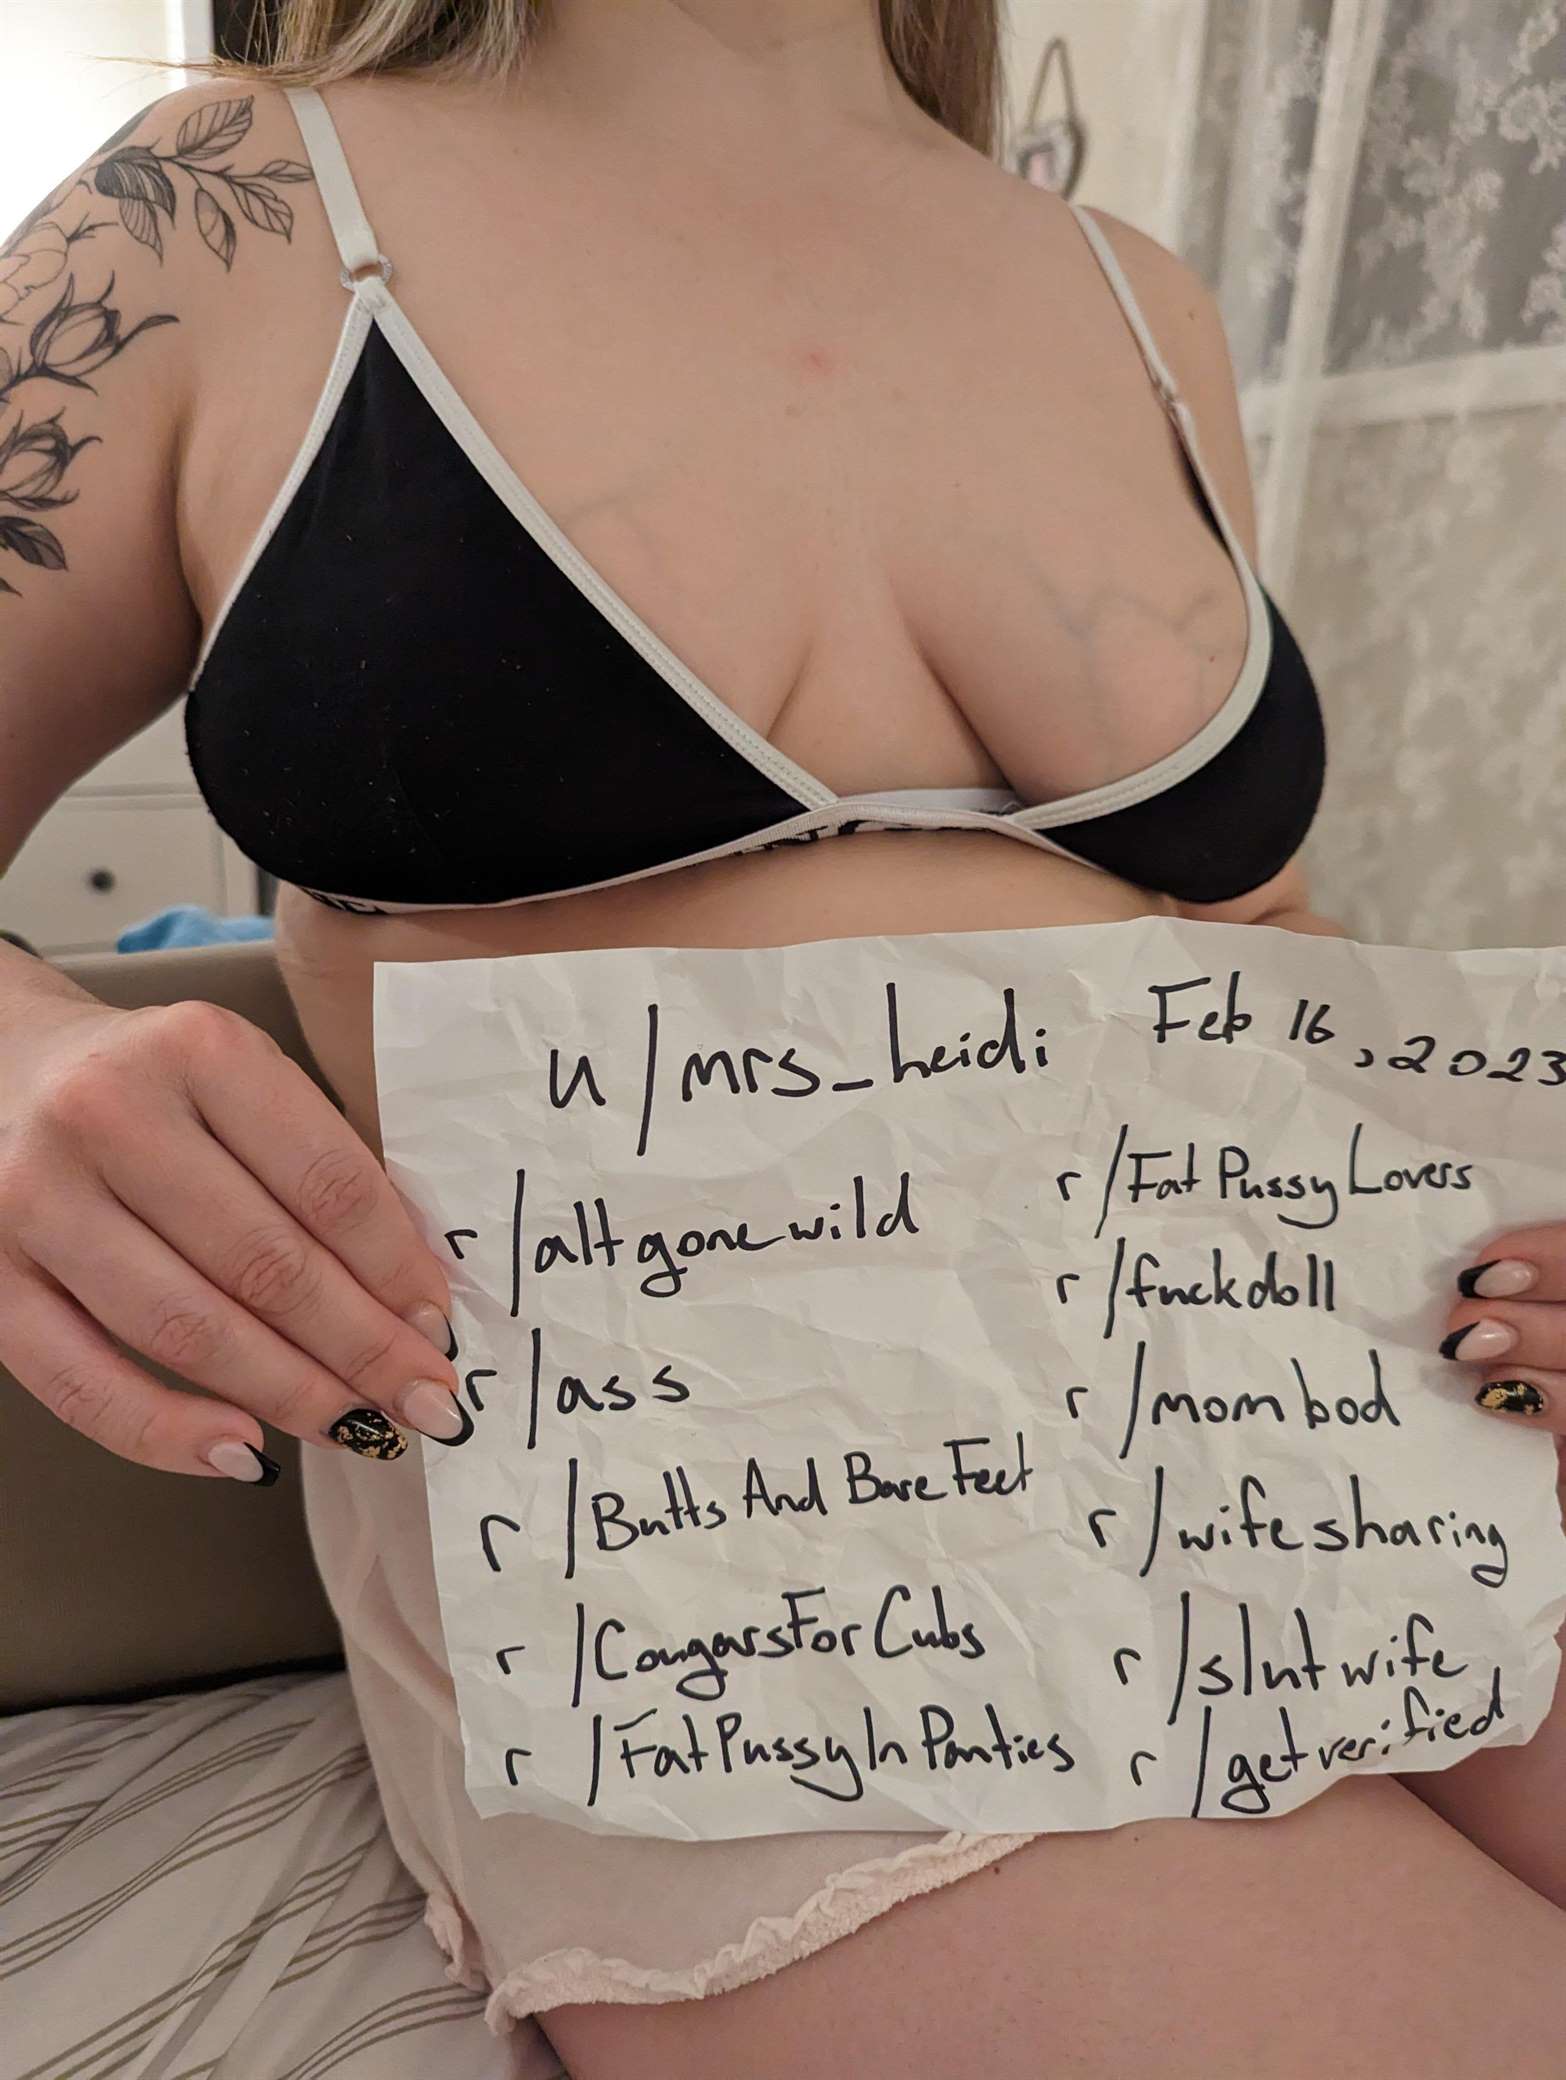 u/mrs_heidi Feb 16, 2023
r/altgonewild
r/ass
r/ButtsAndBareFeet
r/CougarsForCubs
r/FatPussyInPanties
r/FatPussyLovers
r/fuckdoll
r/mombod
r/wifesharing
r/slutwife
r/getverified